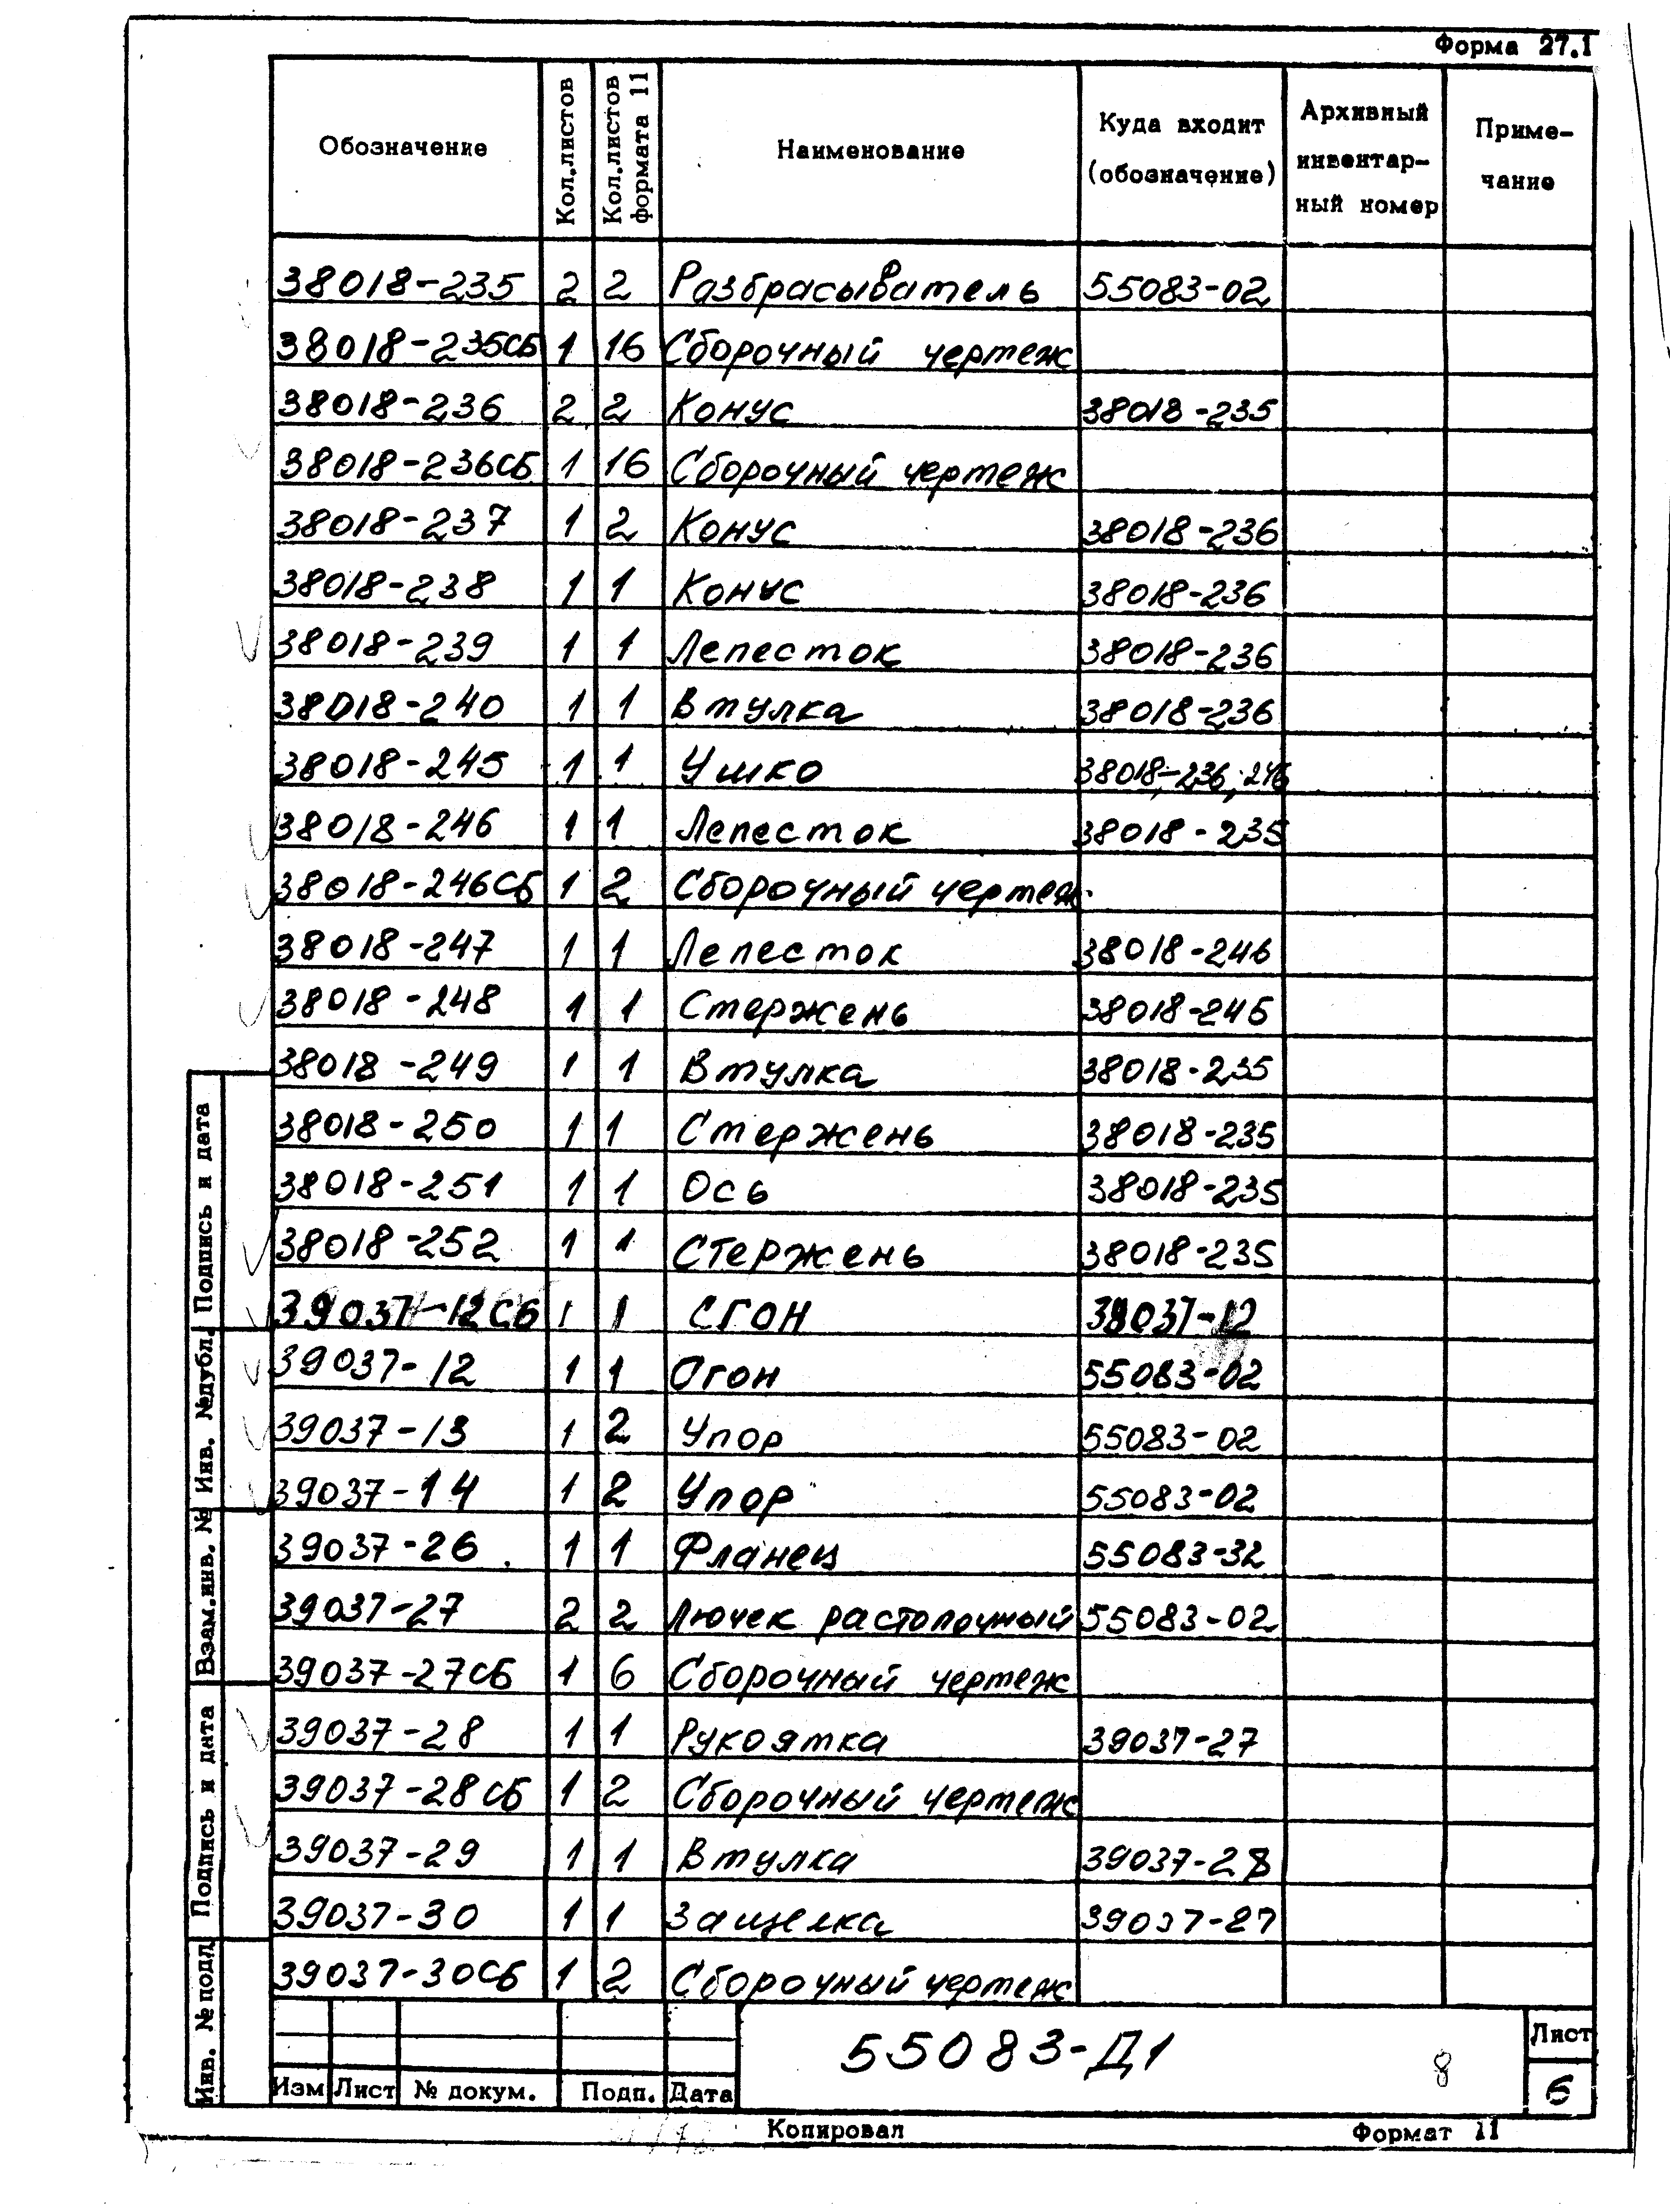 Форма 27.1
Обозначение
Кол.листов
Кол.листов формата 11
Наименование
Куда входит (обозначение)
Архивный инвентар- ный номер
Приме- чание
38018-235 2 2 Разбрасыватель 55083-02
38018-235СБ 1 16 Сборочный чертеж
38018-236 2 2 Конус 38018-235
38018-236СБ 1 16 Сборочный чертеж
38018-237 1 2 Конус 38018-236
38018-238 1 1 Конус 38018-236
38018-239 1 1 Лепесток 38018-236
38018-240 1 1 Втулка 38018-236
38018-245 1 1 Ушко 38018-236, 246
38018-246 1 1 Лепесток 38018-235
38018-246СБ 1 2 Сборочный чертеж
38018-247 1 1 Лепесток 38018-246
38018-248 1 1 Стержень 38018-246
38018-249 1 1 Втулка 38018-235
38018-250 1 1 Стержень 38018-235
38018-251 1 1 Ось 38018-235
38018-252 1 1 Стержень 38018-235
39037-12СБ 1 1 СГОН 39037-12
39037-12 1 1 Сгон 55083-02
39037-13 1 2 Упор 55083-02
39037-14 1 2 Упор 55083-02
39037-26 1 1 Фланец 55083-32
39037-27 2 2 Лючек растопочный 55083-02
39037-27СБ 1 6 Сборочный чертеж
39037-28 1 1 Рукоятка 39037-27
39037-28СБ 1 2 Сборочный чертеж
39037-29 1 1 Втулка 39037-28
39037-30 1 1 Защелка 39037-27
39037-30СБ 1 2 Сборочный чертеж
Подпись и дата
Инв. №дубл.
Взам.инв. №
Подпись и дата
Инв. №подл
Изм Лист № докум. Подп. Дата
55083-Д1
8
Лист
6
Копировал
Формат 11